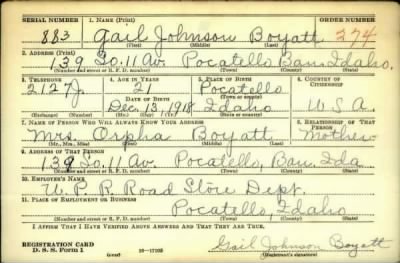 SERIAL NUMBER 1. NAME (Print) ORDER NUMBER
883 Gail Johnson Boyatt 274
(First) (Middle) (Last)
2. ADDRESS (Print)
139 So. 11 Av. Pocatello Ban. Idaho.
(Number and street or R. F. D. number) (Town) (County) (State)
3. TELEPHONE 4. AGE IN YEARS 5. PLACE OF BIRTH 6. COUNTRY OF CITIZENSHIP
2127J. 21 Pocatello
DATE OF BIRTH
Dec. 13, 1918 Idaho U S A.
(Exchange) (Number) (Mo.) (Day) (Yr.) (State or country)
7. NAME OF PERSON WHO WILL ALWAYS KNOW YOUR ADDRESS 8. RELATIONSHIP OF THAT PERSON
Mrs. Orpha Boyatt Mother
(Mr., Mrs., Miss) (First) (Middle) (Last)
9. ADDRESS OF THAT PERSON
139 So. 11 Av. Pocatello, Ban. Ida
(Number and street or R. F. D. number) (Town) (County) (State)
10. EMPLOYER'S NAME
U. P. R. Road Store Dept.
11. PLACE OF EMPLOYMENT OR BUSINESS
Pocatello, Idaho
(Number and street or R. F. D. number) (Town) (County) (State)
I AFFIRM THAT I HAVE VERIFIED ABOVE ANSWERS AND THAT THEY ARE TRUE.
REGISTRATION CARD
D. S. S. Form 1 (over) Gail Johnson Boyatt